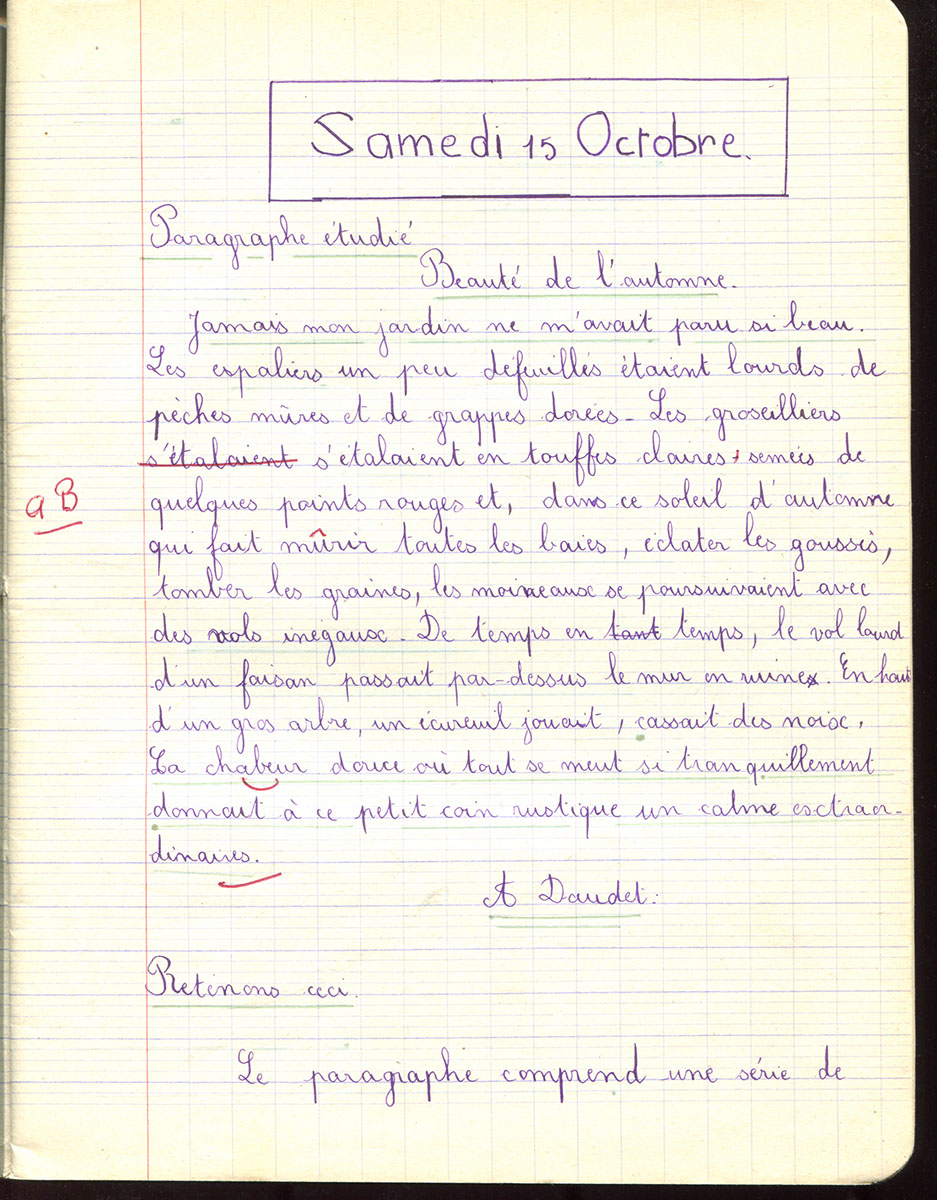 Samedi 15 Octobre.
Paragraphe étudié
Beauté de l'automne.
Jamais mon jardin ne m'avait paru si beau.
Les espaliers un peu défeuillés étaient lourds de
pêches mûres et de grappes dorées. Les groseilliers
s'étalaient s'étalaient en touffes claires, semées de
quelques points rouges et, dans ce soleil d'automne
qui fait mûrir toutes les baies, éclater les gousses,
tomber les graines, les moineaux se poursuivaient avec
des vols inégaux. De temps en tant temps, le vol lourd
d'un faisan passait par-dessus le mur en ruines. En haut
d'un gros arbre, un écureuil jouait, cassait des noix.
aB
La chaleur douce où tout se meut si tranquillement
donnait à ce petit coin rustique un calme extraor-
dinaires.
A Daudet.
Retenons ceci.
Le paragraphe comprend une série de